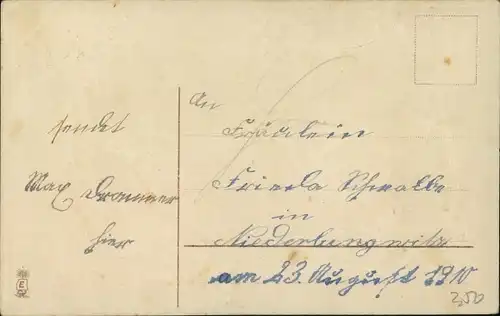 sendet
Max Brenner
hier
An
Fräulein
Frieda Schwalbe
in
Niederlungwitz
am 23. August 1910
2,50